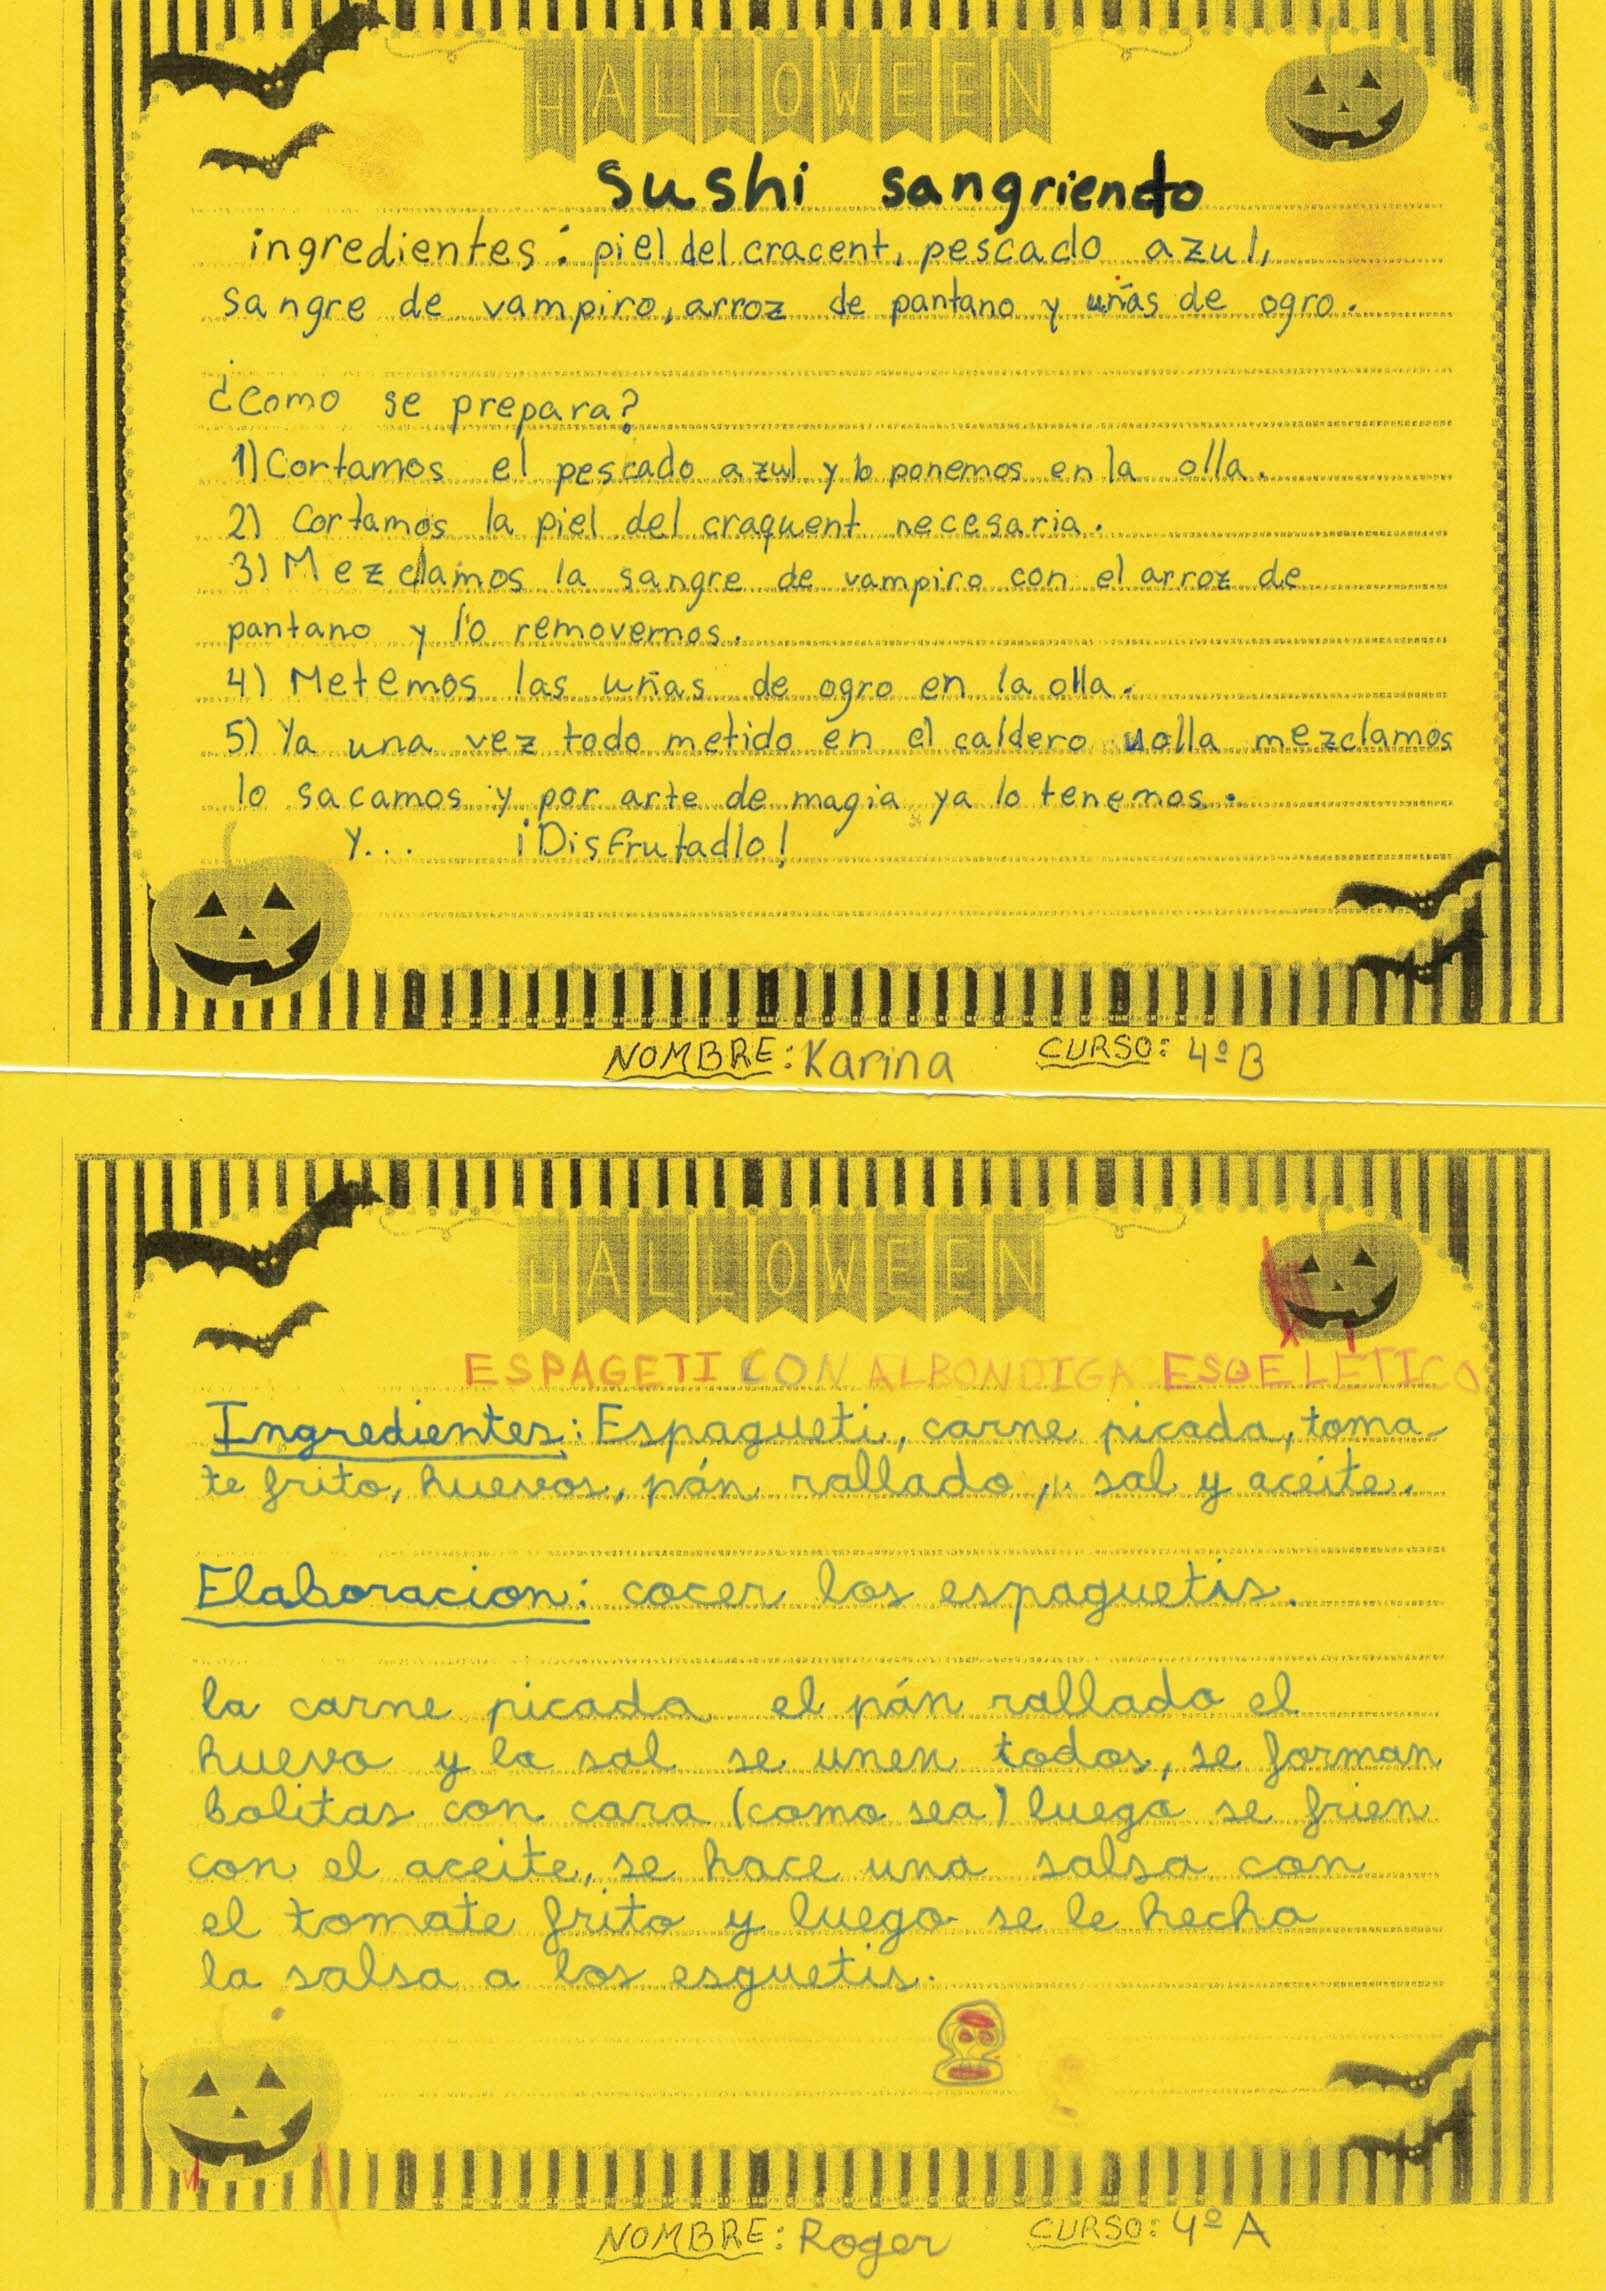 HALLOWEEN
sushi sangriento
ingredientes: piel del cracent, pescado azul,
sangre de vampiro, arroz de pantano y uñas de ogro.
¿Como se prepara?
1) Cortamos el pescado azul y lo ponemos en la olla.
2) Cortamos la piel del craquent necesaria.
3) Mezclamos la sangre de vampiro con el arroz de
pantano y lo removemos.
4) Metemos las uñas de ogro en la olla.
5) Ya una vez todo metido en el caldero uolla mezclamos
lo sacamos y por arte de magia ya lo tenemos.
Y... ¡Disfrutadlo!
NOMBRE: Karina CURSO: 4º B
HALLOWEEN
ESPAGETI CON ALBONDIGA ESQELETICO
Ingredientes: Espagueti, carne picada, toma-
te frito, huevos, pán rallado, sal y aceite.
Elaboracion: cocer los espaguetis.
la carne picada el pán rallado el
huevo y la sal se unen todos, se forman
bolitas con cara (como sea) luego se frien
con el aceite, se hace una salsa con
el tomate frito y luego se le hecha
la salsa a los esguetis.
NOMBRE: Roger CURSO: 4º A